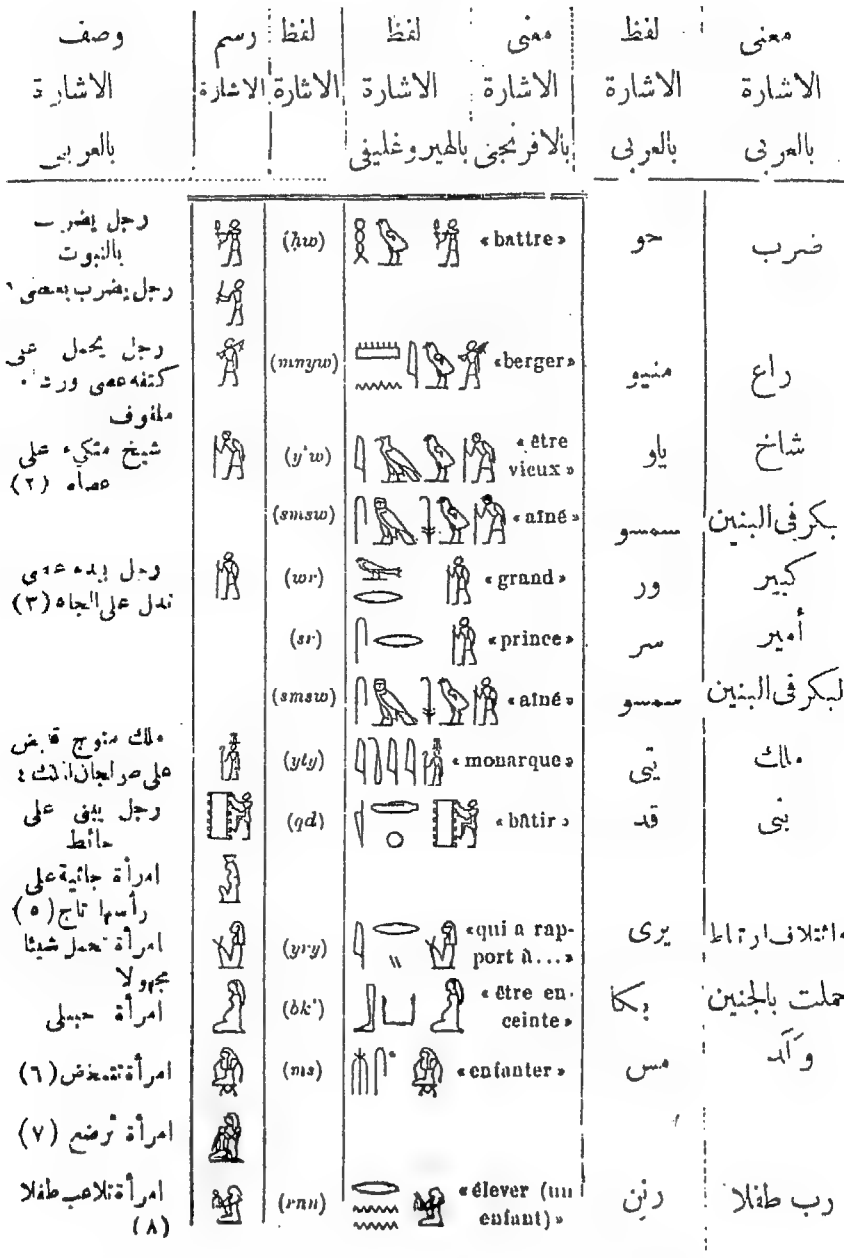 معنى لفظ معنى لفظ لفظ رسم وصف
الاشارة الاشارة الاشارة الاشارة الاشارة الاشارة الاشارة
بالعربى بالعربى بالافرنجى بالهيروغليفى بالعربى
ضرب حو «battre» (ḥw) رجل يضرب
بالنبوت
رجل يضرب بعصى ١
راع منيو «berger» (mnyw) رجل يحمل على
كتفه عصى
ملفوف
شاخ ياو «être vieux» (y'w) شيخ متكىء على
عصاه (٢)
بكر فى البنين سمسو «aîné» (smsw)
كبير ور «grand» (wr) رجل بيده عصى
تدل على الجاه (٣)
أمير سر «prince» (sr)
البكر فى البنين سمسو «aîné» (smsw)
ملك يتى «monarque» (yty) ملك متوج قابض
على صولجان الملك ٤
بنى قد «bâtir» (qd) رجل يبنى على
حائط
امرأة جاثية على
رأسها تاج (٥)
ائتلاف ارتباط يرى «qui a rap-
port à...» (yry) امرأة تحمل شيئا
مجهولا
حملت بالجنين بكا «être en-
ceinte» (bk') امرأة حبلى
ولد مس «enfanter» (ms) امرأة تتمخض (٦)
امرأة ترضع (٧)
رب طفلا رنن «élever (un
enfant)» (rnn) امرأة تلاعب طفلا
(٨)